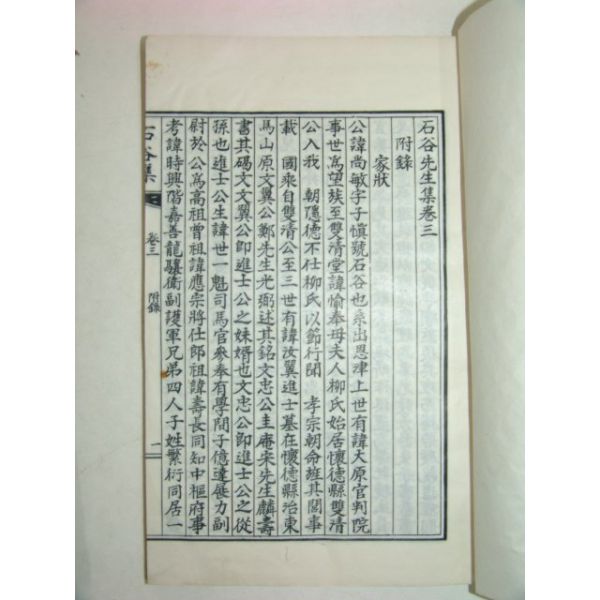 石谷先生集卷三
附錄
家狀
公諱尚敏字子愼號石谷也系出恩津上世有諱大原官判院
事世爲望族至雙清堂諱愉奉母夫人柳氏始居懷德縣雙清
公入我 朝隱德不仕柳氏以節行聞 孝宗朝命旌其閭事
載 國乘自雙清公至三世有諱汝翼進士墓在懷德縣治東
馬山原文翼公鄭先生光弼述其銘文忠公圭庵宋先生麟壽
書其碣文文翼公卽進士公之妹婿也文忠公卽進士公之從
孫也進士公生諱世一魁司馬官參奉有學問子億達展力副
尉於公爲高祖曾祖諱應宗將仕郎祖諱壽長同知中樞府事
考諱時興階嘉善龍驤衛副護軍兄弟四人子姓繁衍同居一
石谷集 卷三 附錄 一